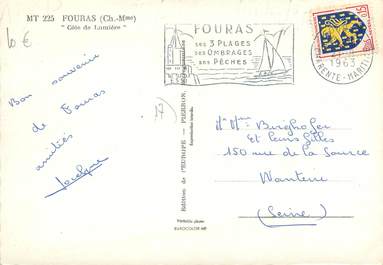 MT 225 FOURAS (Ch.-Mme)
" Côte de Lumière "
10 €
FOURAS
SES 3 PLAGES
SES OMBRAGES
SES PÊCHES
1963
CHARENTE-MARITI
Bon souvenir
de Fouras
amitiés
Jocelyne
17
Édition de l'EUROPE - PIERRON,
Reproduction interdite
Véritable photo
EUROCOLOR-MF
Mr Mme
et leurs filles
150 rue de la Source
Nanterre
(Seine)